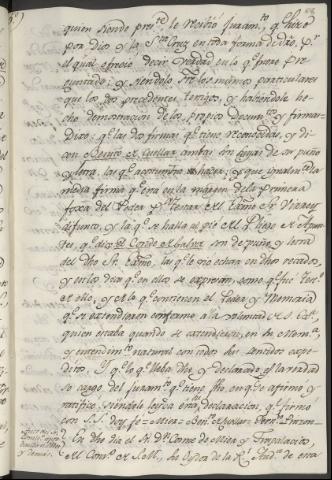 quien siendo pres.te le recibió Juram.to, q.e hizo
por Dios y la S.ta Cruz en toda forma de Dro, p.r
el qual ofreció decir Verdad en lo q.e fuere pre-
guntado; y siendolo los mismos particulares
que los precedentes testigos, y haviendole he-
cho demostracion de los propios Docum.tos y firmas
Dixo: q.e las dos firmas q.e tiene reconocidas, y di-
cen Benito de Cuellar ambas son suyas de su puño
y letra, las q.e acostumbra hacer; y que igualm.te la
media firma q.e está en la margen de la primera
foxa del Poder p.a testar del Exmo S.r Virrey
difunto, y la q.e se halla al pie del Pliego de Apun-
tes, q.e dice el Conde de Galve son de puño y letra
del dho S.r Exmo, las q.e vio echar en dhos recados,
y en los dias q.e en ellos se expresan, como q.e fue Tes.o
de ello, y de lo q.e contienen el Poder y Memoria
q.e se extendieron conforme a la voluntad de S. Ex.a
quien estaba quando se extendieron, en su Mem.a,
y entendim.to natural con todos sus sentidos expe-
dito. Y q.e lo q.e lleba dho y declarado es la verdad
so cargo del Juram.to q.e tiene fho en que se afirmó y
ratificó, siendole leyda esta declaracion, q.e firmó
con S.S. doy fe=
En dho dia el S. D.n Cosme de Mier y Trespalacios,
del Cons.o de S.M., su Oydor de la R.l Aud.a de esta